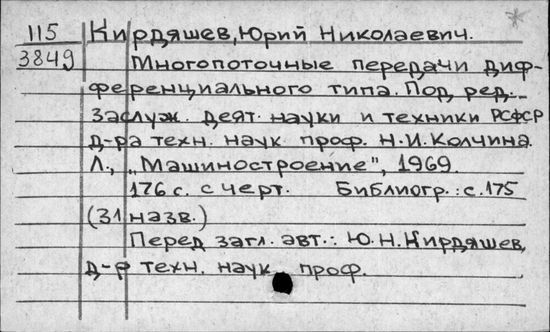 115 Кирдяшев, Юрий Николаевич.
3849 Многопоточные передачи диф-
ференциального типа. Под ред.
Заслуж. деят. науки и техники РСФСР
д-ра техн. наук проф. Н.И.Колчина.
Л., „Машиностроение", 1969.
176 с. с черт. Библиогр.: с.175
(31 назв.)
Перед загл. авт.: Ю.Н.Кирдяшев,
д-р техн. наук, проф.